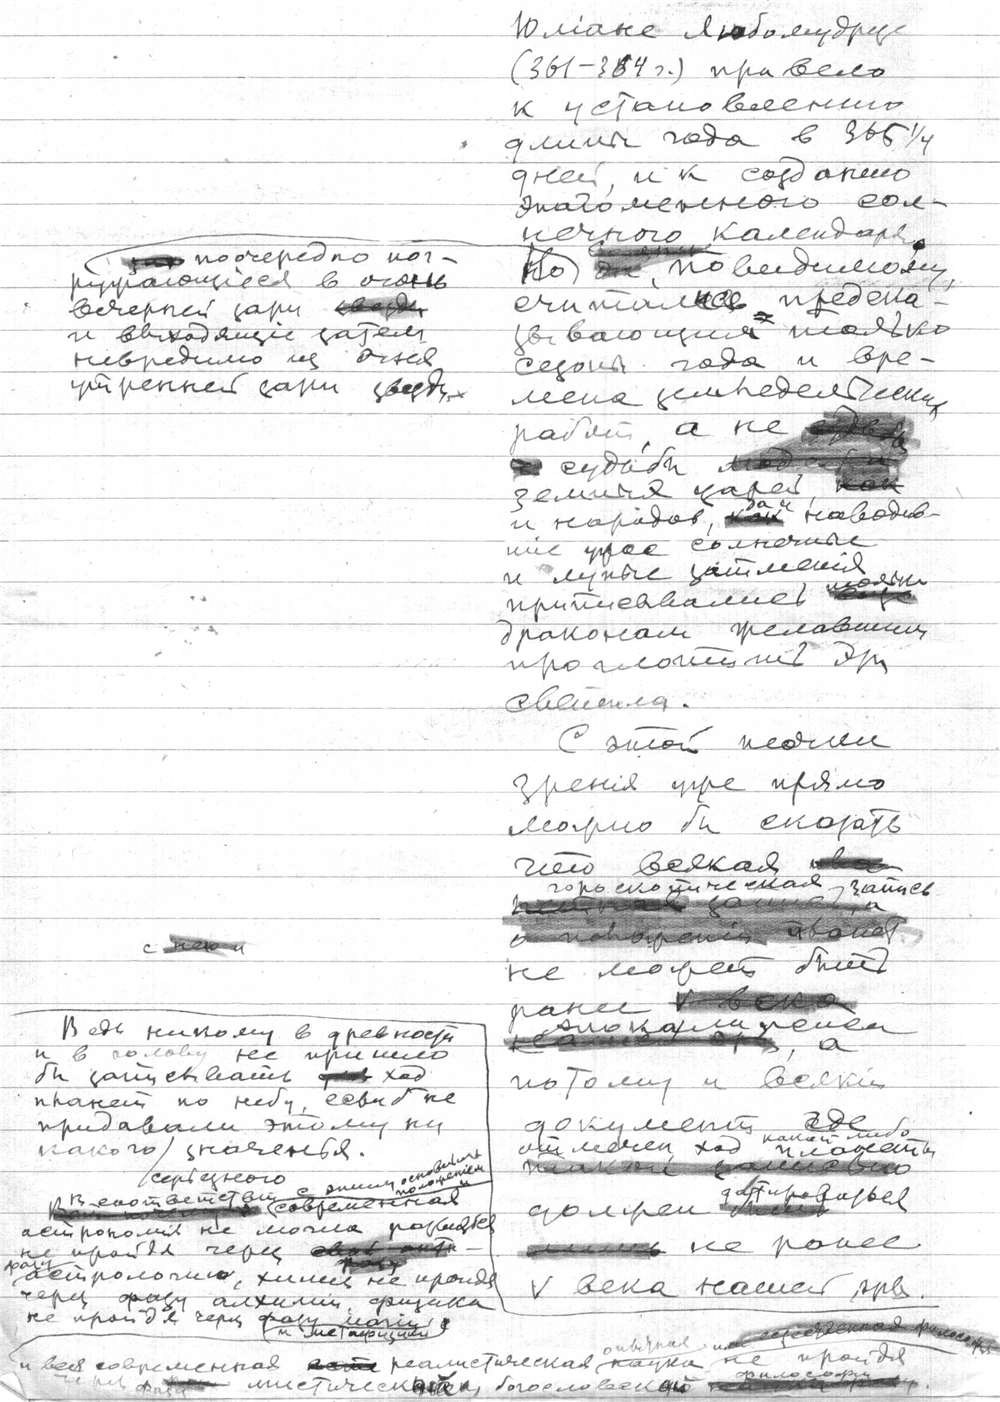 Юліане Любомудрце
(361-364 г.) привело
к установленію
длины года в 365 1/4
дней, и к созданію
знаго менного сол-
нечного календаря.
Но повидимому,
считался предска-
зывающим только
сезоны года и вре-
мена земледелческих
работ, а не
судьбы
земных царей,
и народов, да и наводив-
шіе ужас солнечные
и лунные затменія
приписывались
драконам желавшим
проглотить эти
светила.
С этой точки
зренія уже прямо
можно бы сказать
что всякая
гороскопическая запись
не может быть
ранее
Апокалипсиса
, а
потому и всякій
документ где
отмечен ход какой либо планеты
должен датироваться
не ранее
V века нашей эры.
поочередно пог-
ружающіеся в огонь
вечерней зари
и выходящіе затем
невредимо из огня
утренней зари звезды
с
Ведь никому в древности
и в голову не пришло
бы записывать ход
планет по небу, еслиб не
придавали этому ни
какого значенья.
серьезного
В соответствіи с этим основным положением
современная
астрономія не могла развиться
не пройдя через
фазу
астрологіи, химія не пройдя
через фазу алхиміи, физика
не пройдя через фазу магіи
и метафизики
и вся современная реалистическая наука не пройдя
через фазу мистической богословской философіи.